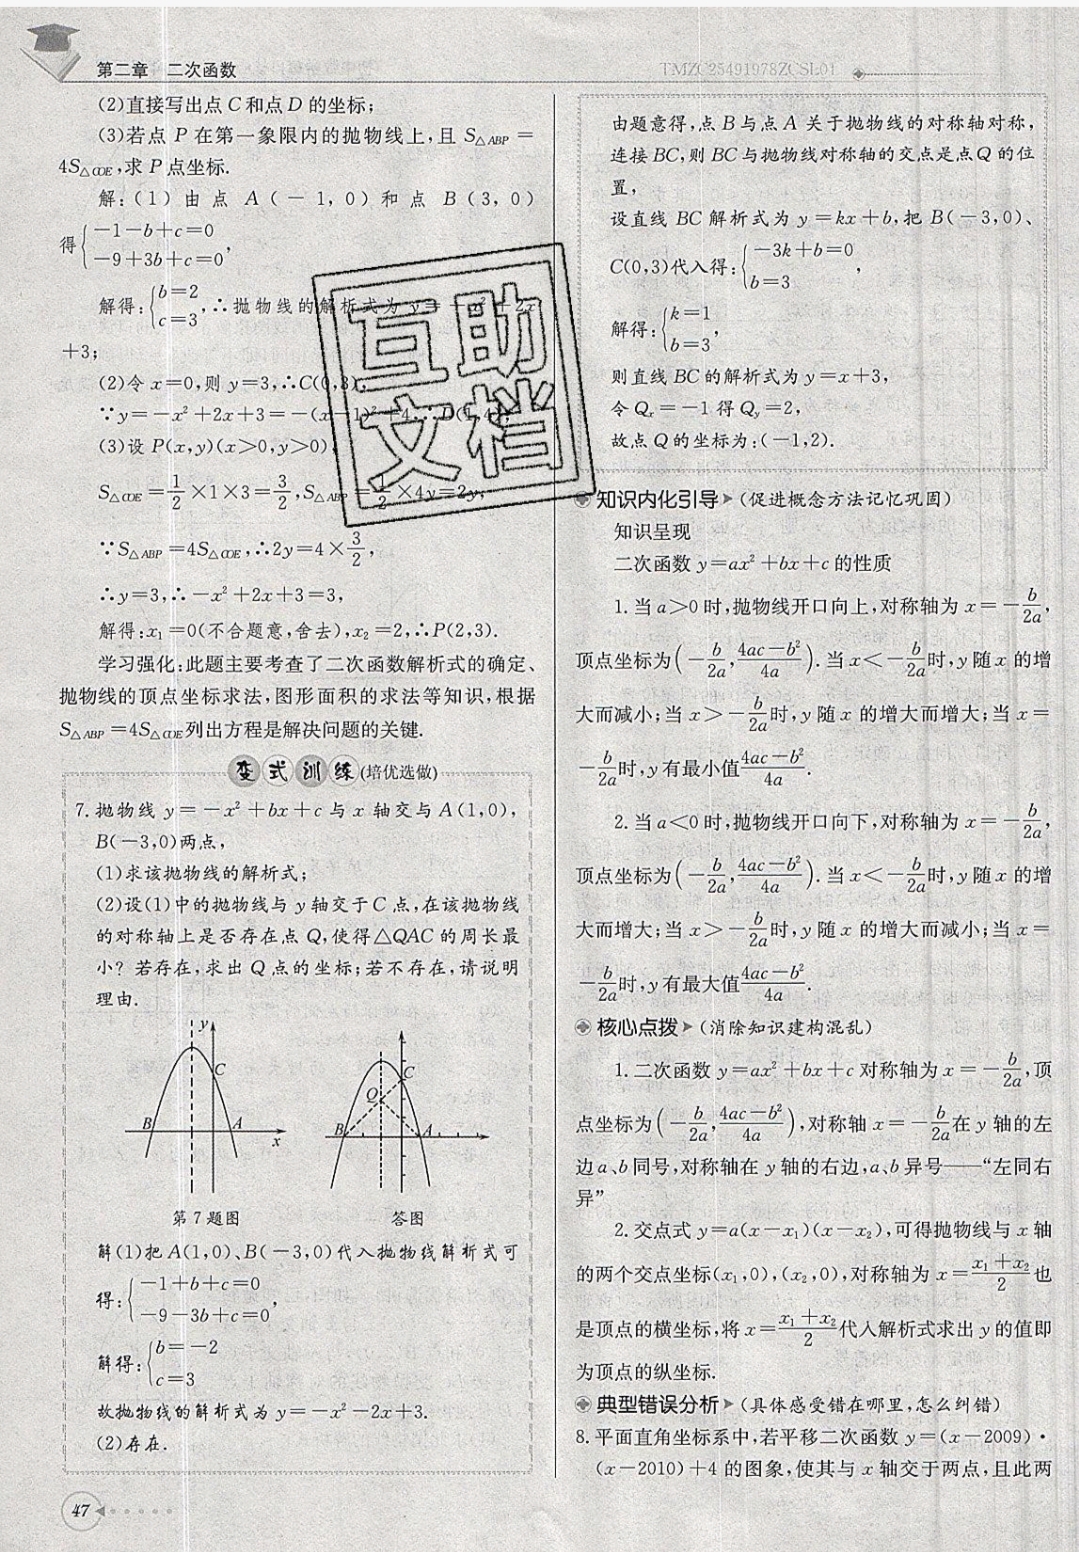 第二章 二次函数
TMZC25491978ZCSL01
(2)直接写出点 C 和点 D 的坐标;
(3)若点 P 在第一象限内的抛物线上,且 S△ABP =
4S△COE,求 P 点坐标.
解:(1)由点 A(-1,0)和点 B(3,0)
得{-1-b+c=0
-9+3b+c=0,
解得:{b=2
c=3,∴抛物线的解析式为 y=-x²+2x
+3;
(2)令 x=0,则 y=3,∴C(0,3),
∵y=-x²+2x+3=-(x-1)²+4,∴D(1,4);
(3)设 P(x,y)(x>0,y>0),
S△COE=1/2×1×3=3/2,S△ABP=1/2×4y=2y,
∵S△ABP=4S△COE,∴2y=4×3/2,
∴y=3,∴-x²+2x+3=3,
解得:x₁=0(不合题意,舍去),x₂=2,∴P(2,3).
学习强化:此题主要考查了二次函数解析式的确定、
抛物线的顶点坐标求法,图形面积的求法等知识,根据
S△ABP=4S△COE列出方程是解决问题的关键.
变式训练(培优选做)
7.抛物线 y=-x²+bx+c 与 x 轴交与 A(1,0),
B(-3,0)两点,
(1)求该抛物线的解析式;
(2)设(1)中的抛物线与 y 轴交于 C 点,在该抛物线
的对称轴上是否存在点 Q,使得△QAC 的周长最
小? 若存在,求出 Q 点的坐标;若不存在,请说明
理由.
y
C
B
A
x
第7题图
C
Q
B
A
答图
解(1)把 A(1,0)、B(-3,0)代入抛物线解析式可
得:{-1+b+c=0
-9-3b+c=0,
解得:{b=-2
c=3
故抛物线的解析式为 y=-x²-2x+3.
(2)存在.
47
由题意得,点 B 与点 A 关于抛物线的对称轴对称,
连接 BC,则 BC 与抛物线对称轴的交点是点 Q 的位
置,
设直线 BC 解析式为 y=kx+b,把 B(-3,0)、
C(0,3)代入得:{-3k+b=0
b=3,
解得:{k=1
b=3,
则直线 BC 的解析式为 y=x+3,
令 Qₓ=-1 得 Qᵧ=2,
故点 Q 的坐标为:(-1,2).
知识内化引导(促进概念方法记忆巩固)
知识呈现
二次函数 y=ax²+bx+c 的性质
1.当 a>0 时,抛物线开口向上,对称轴为 x=-b/2a,
顶点坐标为(-b/2a,4ac-b²/4a).当 x<-b/2a时,y 随 x 的增
大而减小;当 x>-b/2a时,y 随 x 的增大而增大;当 x=
-b/2a时,y 有最小值4ac-b²/4a.
2.当 a<0 时,抛物线开口向下,对称轴为 x=-b/2a,
顶点坐标为(-b/2a,4ac-b²/4a).当 x<-b/2a时,y 随 x 的增
大而增大;当 x>-b/2a时,y 随 x 的增大而减小;当 x=
-b/2a时,y 有最大值4ac-b²/4a.
核心点拨(消除知识建构混乱)
1.二次函数 y=ax²+bx+c 对称轴为 x=-b/2a,顶
点坐标为(-b/2a,4ac-b²/4a),对称轴 x=-b/2a在 y 轴的左
边 a、b 同号,对称轴在 y 轴的右边,a、b 异号——“左同右
异”
2.交点式 y=a(x-x₁)(x-x₂),可得抛物线与 x 轴
的两个交点坐标(x₁,0),(x₂,0),对称轴为 x=x₁+x₂/2也
是顶点的横坐标,将 x=x₁+x₂/2代入解析式求出 y 的值即
为顶点的纵坐标.
典型错误分析(具体感受错在哪里,怎么纠错)
8.平面直角坐标系中,若平移二次函数 y=(x-2009)·
(x-2010)+4 的图象,使其与 x 轴交于两点,且此两
互助
文档